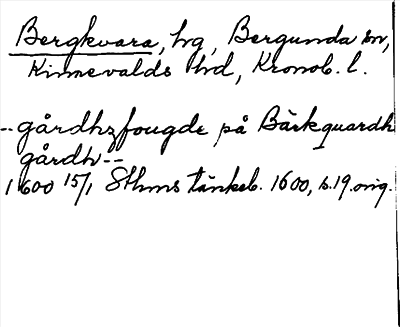 Bergkvara, hg, Bergunda sn,
Kinnevalds hd, Kronob. l.
--gårdhzfougde på Bärkquardh
gårdh--
1600 15/1 Sthms tänkeb. 1600, s.19.orig.